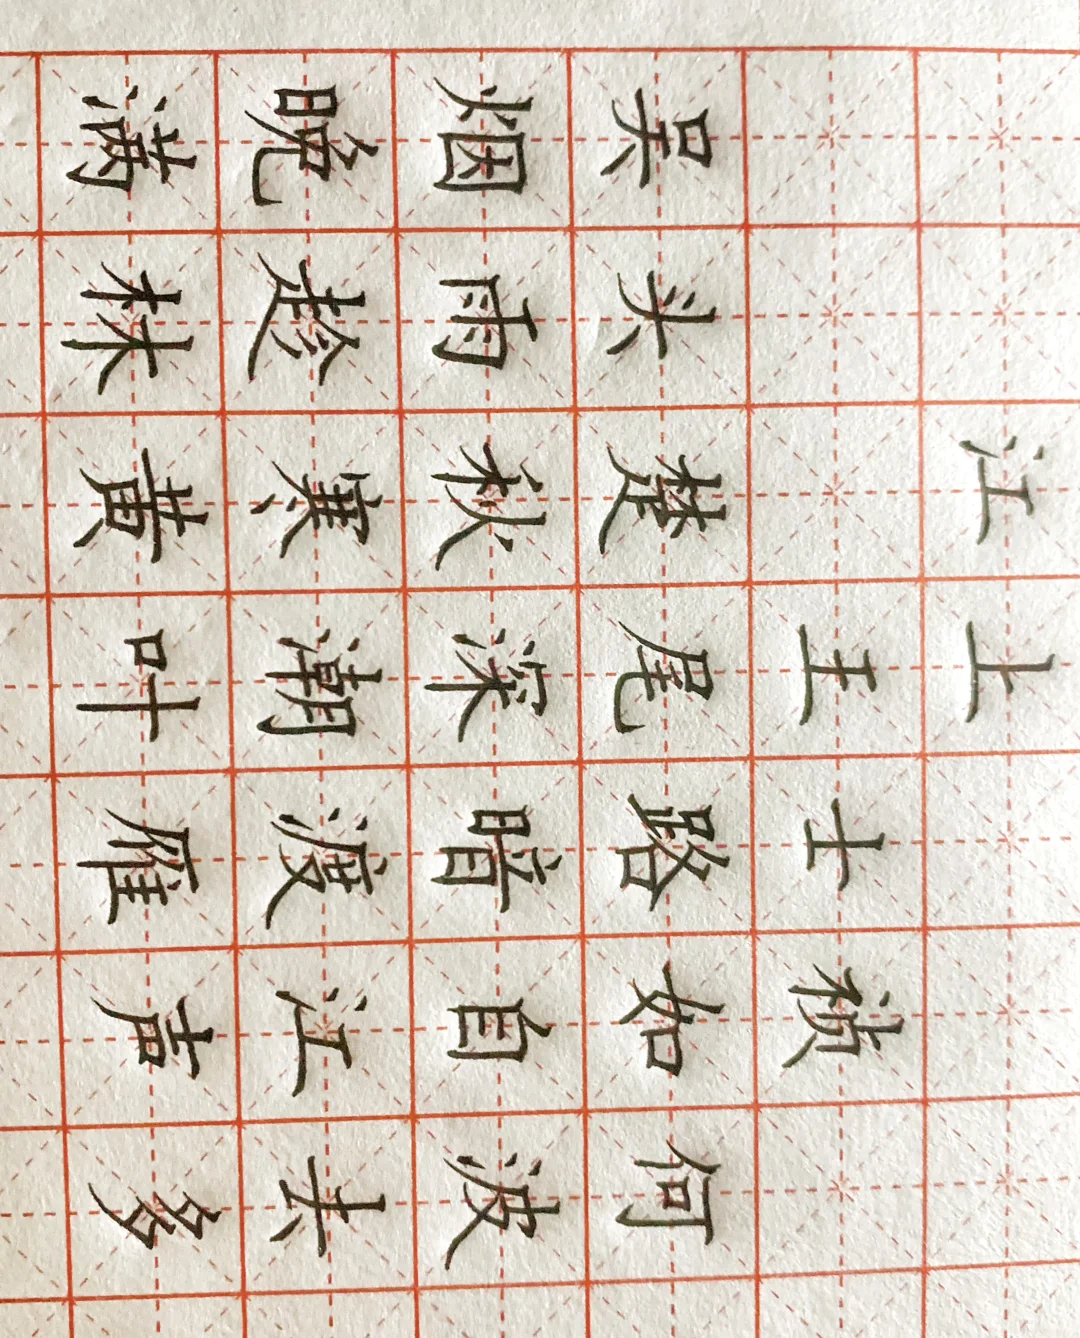 江上
王士祯
吴头楚尾路如何
烟雨秋深暗自波
晚趁寒潮渡江去
满林黄叶雁声多